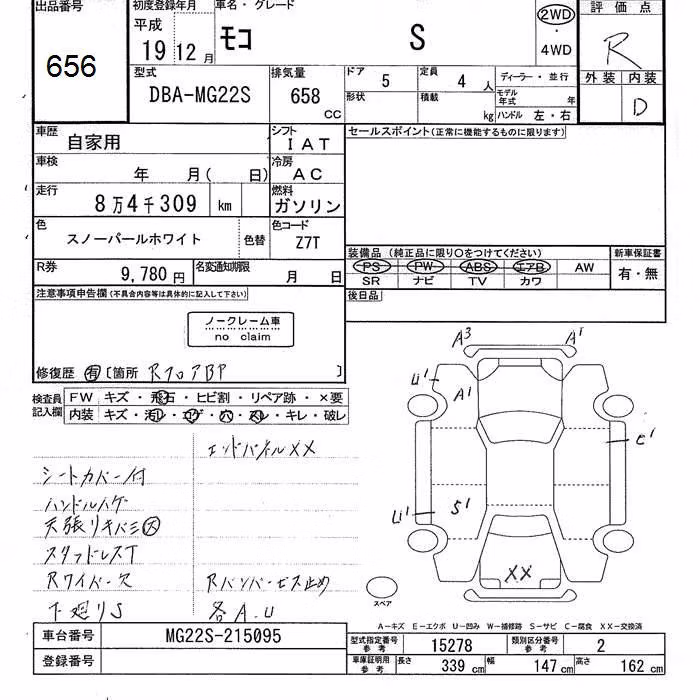 出品番号
656
初度登録年月
平成
19 12月
車名・グレード
モコ S
2WD
・
4WD
評価点
R
外装 内装
D
型式
DBA-MG22S
排気量
658
CC
ドア 5
定員 4人
形状
積載 kg
ディーラー・並行
モデル年式 年
ハンドル 左・右
車歴
自家用
シフト
IAT
セールスポイント(正常に機能するものに限ります)
車検
年 月( 日)
冷房
AC
走行
8万4千309 km
燃料
ガソリン
色
スノーパールホワイト
色替
色コード
Z7T
装備品(純正品に限り○をつけてください)
PS PW ABS エアB AW
SR ナビ TV カワ
新車保証書
有・無
R券
9,780円
名変通知期限
月 日
後日品
注意事項申告欄(不具合内容等は具体的に記入して下さい)
ノークレーム車
no claim
修復歴 有 [箇所 RフロアBP ]
検査員記入欄
FW キズ・飛石・ヒビ割・リペア跡・×要
内装 キズ・汚レ・コゲ・穴・スレ・キレ・破レ
エンドパネルXX
シートカバー付
ハンドルハゲ
天張リキバミ大
スタッドレスT
Rワイパー欠
Rバンパービス止め
下廻りS
各A.U
A3 A1
U1
A1
e1
U1
S1
XX
スペア
A-キズ E-エクボ U-凹み W-補修跡 S-サビ C-腐食 XX-交換済
車台番号
MG22S-215095
登録番号
型式指定番号 参考 15278
類別区分番号 参考 2
車庫証明用 参考
長さ 339 cm 幅 147 cm 高さ 162 cm